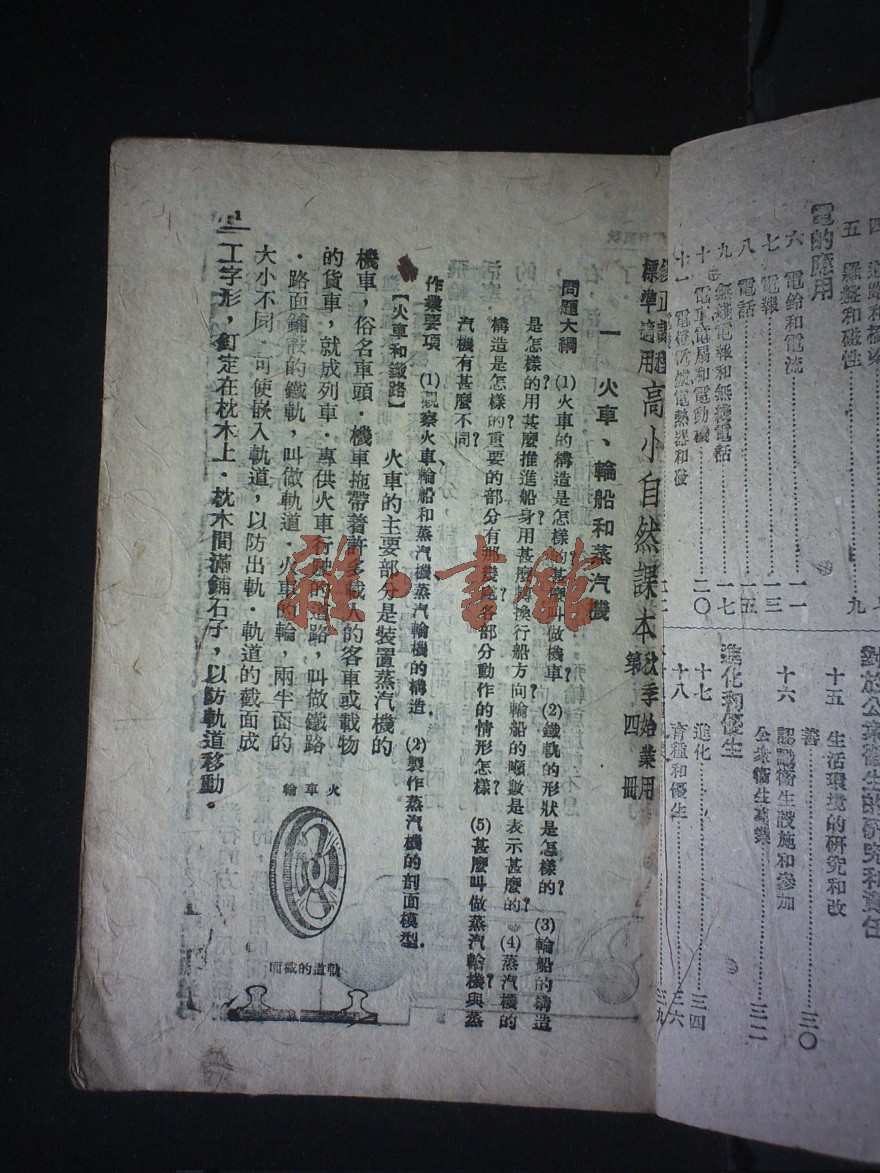 標準適用
高小自然課本
秋季始業用
第四冊
一 火車、輪船和蒸汽機
問題大綱 (1)火車的構造是怎樣的?甚麼叫做機車? (2)鐵軌的形狀是怎樣的? (3)輪船的構造
是怎樣的?用甚麼推進船身?用甚麼轉換行船方向?輪船的噸數是表示甚麼的? (4)蒸汽機的
構造是怎樣的?重要的部分有那幾處?各部分動作的情形怎樣? (5)甚麼叫做蒸汽輪機?與蒸
汽機有甚麼不同?
作業要項 (1)觀察火車輪船和蒸汽機蒸汽輪機的構造. (2)製作蒸汽機的剖面模型.
【火車和鐵路】 火車的主要部分是裝置蒸汽機的
機車，俗名車頭．機車拖帶着許多載人的客車或載物
的貨車，就成列車．專供火車行駛的道路，叫做鐵路
．路面鋪設的鐵軌，叫做軌道．火車的輪，兩半面的
大小不同．可使嵌入軌道，以防出軌．軌道的截面成
工字形，釘定在枕木上．枕木間滿鋪石子，以防軌道移動。
火車輪
軌道的截面
五 羅盤和磁性……九
電的應用
六 電鈴和電流……一一
七 電報……一三
八 電話……一五
九 無綫電報和無綫電話……一七
十 電車電扇和電動機……二〇
對於公衆衞生的研究和責任
十五 生活環境的研究和改
善……三〇
十六 認識衞生設施和參加
公衆衞生事業……三二
進化和優生
十七 進化……三四
十八 育種和優生……三六
雜·書館